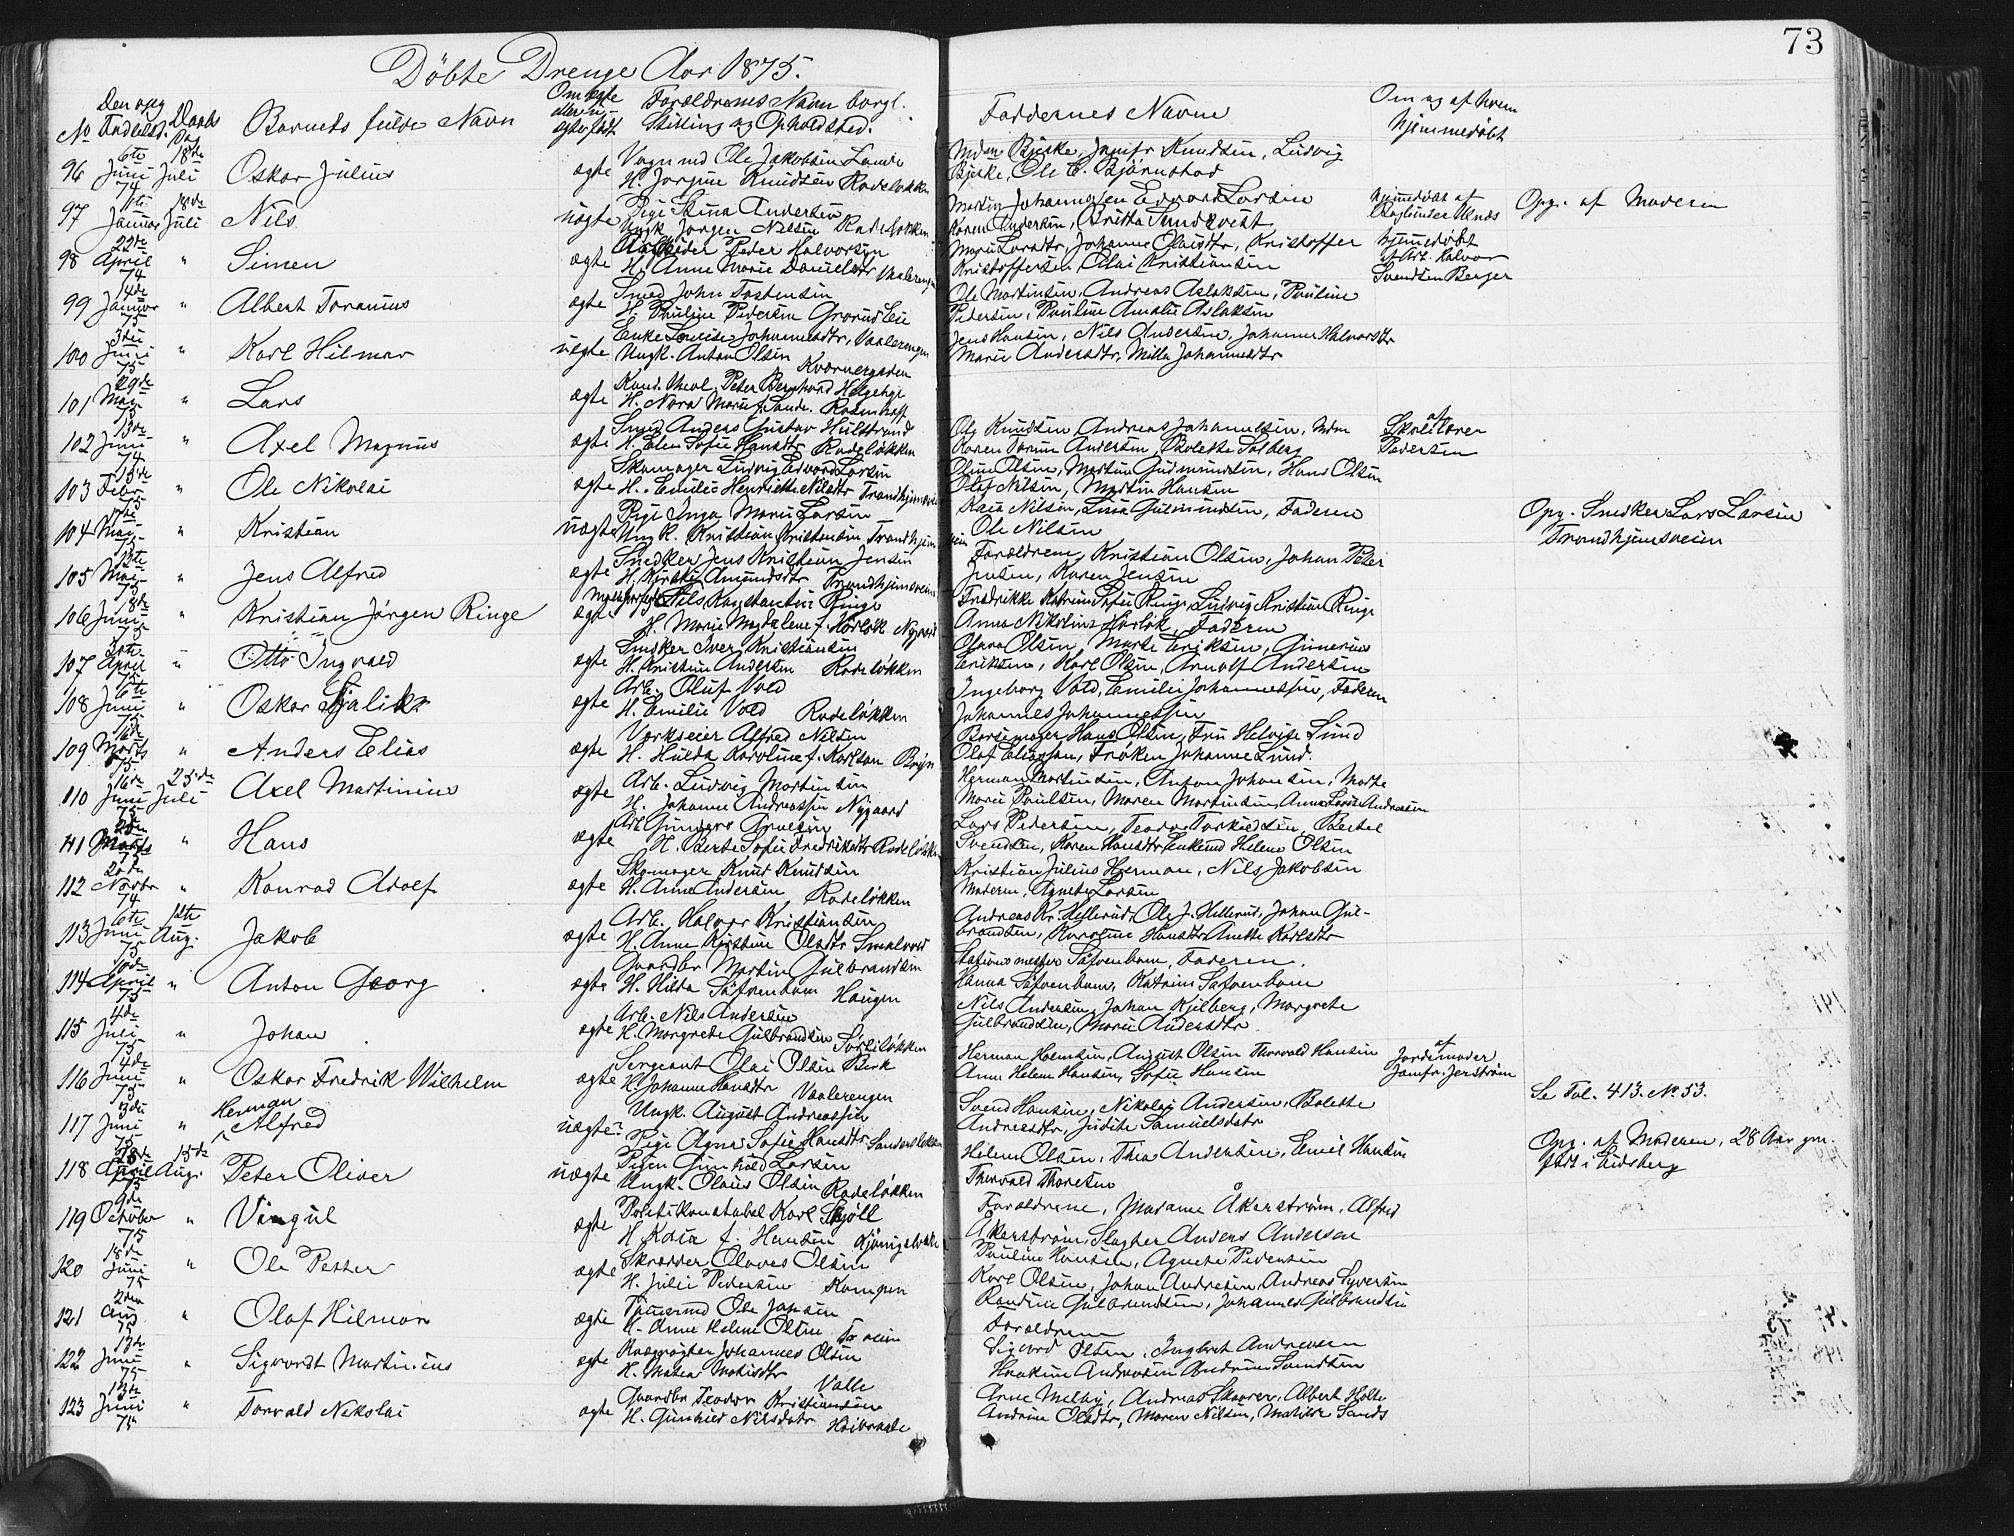 73
Döbte Drenge Aar 1875.
No
Daabs Dag
Barnets fulde Navn
Om ægte eller uægte født
Forældrenes Navn borgl. Stilling og Opholdsted.
Faddernes Navne
Om og af hvem hjemmedöbt
96 6te Juni 74 18de Juli Oskar Julius ægte Vognmd Ole Jakobsen
H. Jorgine Knudsen Rodeløkken
Bjerke, Ole C. Björnstad
97 Januar 18de Juli Nils uægte Pige Stina Andersen
Ungk Jorgen Nilsen Rodeløkken
Martin Johannesen Edvard Larsen
Karen Andersen, Britta Sundqvist
hjemmedöbt af
Opg. af Moderen
98 22de April 74 " Simen ægte Arbeider Peder Halvorsen
H. Anne Marie Danielsdtr Vaalerengen
Johanne Olausdtr, Kristoffer
Kristoffersen, Olai Kristiansen
hjemmedöbt
af Arb. Halvor
Svendsen Berger
99 14de Januar 75 " Albert Toranius ægte Smed John Tostensen
H. Pauline Pedersen Grorud Eie
Ole Martinsen, Andreas Aslaksen, Pauline
Pedersen, Pauline Amalie Aslaksen
100 3die Juni 75 " Karl Hilmar uægte Enke Lovise Johannesdtr, Vaalerengen
Ungk. Anton Olsen Kværnergaden
Jens Hansen, Nils Andersen, Johanne Halvorsdtr
Marie Andersdtr, Milla Johannesdtr
101 29de Mai 75 " Lars ægte Kand. theol. Peter Bernhard Helgeby
H. Nora Marie f. Sande. Rosenhoff
102 13de Juni 74 " Axel Magnus ægte Smed Anders Gustav Hulstrand
H. Elen Sofie Hansdtr Rodeløkken
Ole Knudsen Andreas Johannesen, Mdm
Karen Torine Andersen, Bolette Solberg
af
Skolelærer
Pedersen
103 15de Febr. 75 " Ole Nikolai ægte Skomager Ludvig Edvard Larsen
H. Emilie Henriette Nilsdtr Trondhjemsveien
Oline Olsen, Martin Gudmundsen, Hans Olsen
Olaf Nilsen, Martin Hansen
104 Mai 75 " Kristian uægte Pige Inga Marie Larsen
Ungk. Kristian Kristensen Trondhjemsveien
Kaia Nilsen, Lina Gulmundsen, Faderen
Ole Nilsen
Opg. Snedker Lars Larsen
Trondhjemsveien
105 12te Mai 75 " Jens Alfred ægte Snedker Jens Kristian Jensen
H. Kirsti Amundsdtr Trondhjemsveien
Forældrene, Kristian Olsen, Johan Peter
Jensen, Karen Jensen
106 8de Juni 75 " Kristian Jörgen Ringe ægte Nils Konstantin Ringe
H. Marie Magdalene f. Hörlök Nygaard
Fredrikke Katrine Sofie Ringe, Ludvig Kristian Ringe
Anna Nikoline Hörlök, Faderen
107 30te April 75 " Otto Ingvald ægte Snedker Iver Kristiansen
H. Kristine Andersen Rodeløkken
Clara Olsen, Marte Eriksen, Gunerius
Eriksen, Karl Olsen, Arnolf Andersen
108 6te Juni 75 " Oskar ægte Arb. Oluf Vold
H. Emilie Vold Rodeløkken
Ingeborg Vold, Emilie Johannessen, Faderen
Johannes Johannessen
109 16de Marts 75 " Anders Elias ægte Værkseier Alfred Nilsen
H. Hulda Karoline f. Karlson Bryn
Börsemager Hans Olsen, Fru Helvise Lund
Olof Eliasson, Frøken Johanne Lund.
110 16de Juni 75 25de Juli Axel Martinius ægte Arb. Ludvig Martinsen
H. Johanne Andreassen Nygaard
Herman Martinsen, Anton Johansen, Marte
Marie Paulsen, Maren Martinsen, Anne Lovise Andresen
111 Marts 75 " Hans ægte Arb. Gunders
H. Berte Sofie Fredriksdtr Rodeløkken
Lars Pedersen, Teodor Torkildsen, Bertel
Svendsen, Karen Hansdtr Helene Olsen
112 20de Novbr 74 " Konrad Adolf ægte Skomager Knud Knudsen
H. Anne Andersen Rodeløkken
Kristian Julius Herman, Nils Jakobsen
Moderen, Agnete Larsen
113 6te Juni 75 12te Aug. Jakob ægte Arb. Halvor Kristiansen
H. Anne Kirstine Olsdtr Smalvold
Andreas Kr. Hellerud, Ole J. Hellerud, Johan Gul-
brandsen, Karoline Hansdtr Anette Karlsdtr
114 10de April 75 " Anton Georg ægte Gaardbr Martin Gulbrandsen
H. Hilda Säfvenbom Haugen
Stationsmester Säfvenbom, Faderen.
Hanna Säfvenbom, Katrine Säfvenbom
115 4de Juli 75 " Johan ægte Arb. Nils Andersen
H. Margrete Gulbrandsen Sörliløkken
Nils Andersen, Johan Kjelberg, Margrete
Gulbrandsen, Marie Andersdtr
116 4de Juni 75 " Oskar Fredrik Wilhelm ægte Sergeant Olai Olsen Birk
H. Johanne Hansdtr Vaalerengen
Herman Holmsen, August Olsen Thorvald Hansen
Anne Helene Hansen, Sofie Hansen
af
Jordemoder
Jomfr. Jerström
117 3die Juni 75 " Herman Alfred uægte Ungk. August Andreassen
Pige Agnes Sofie Hansdtr.
Svend Hansen, Nikolai Andersen, Bolette
Andreasdtr, Judite Samuelsdatr
Se Fol. 413. No 53.
118 28de April 75 15de Aug. Peter Oliver uægte Pigen Gunhild Larsen
Ungk. Olaus Olsen Rodeløkken
Helene Olsen, Thea Andersen, Emil Hansen
Thorvald Thoresen
Opg. af Moderen, 28 Aar gm.
født i Eidsberg
119 9de October 75 " Vingul ægte Politikonstabel Karl Skjöll
H. Kaia f. Hansen
Forældrene, Madame Åkerström, Alfred
Åkerström, Slagter Anders Andersen
120 18de Juni 75 " Ole Petter ægte Skrædder Olaves Olsen
H. Julie Pedersen Kampen
Pauline Hansen, Agnete Pedersen
Karl Olsen, Johan Andresen, Andreas Syversen
121 2den Aug 75 " Olaf Hilmar ægte Tömmermd Ole Jansen
H. Anne Helene Olsen Tr veien
Randine Gulbrandsen, Johannes Gulbrandsen
Forældrene
122 13de Juni 75 " Sigvardt Martinius ægte Johannes Olsen
H. Matea Mathisdtr Valle
Sigvard Olsen, Ingbret Andreasen
Haakine Andreasen Andrine Svendsen
123 13de Juni 75 " Torvald Nikolai ægte Gaardbr Teodor Kristiansen
H. Gunhild Nilsdatr Hoibraate
Arne Melby, Andreas Skaarer, Albert Holte
Andrine Olsdtr, Maren Nilsen, Matilde Sands